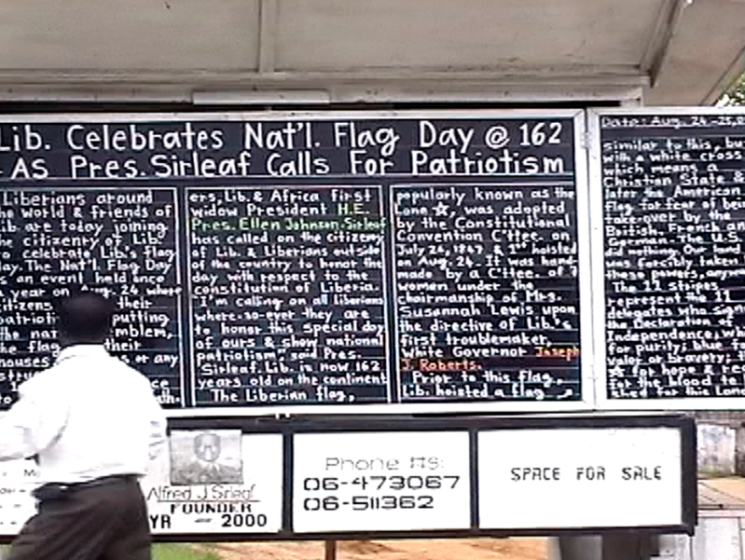 Lib. Celebrates Nat'l. Flag Day @ 162
- As Pres. Sirleaf Calls For Patriotism
Liberians around
the World & friends of
Lib. are today joining
the citizenry of Lib.
to celebrate Lib's flag
day. The Nat'l Flag Day
is an event held once
year on Aug. 24 where
citizens their
patrioti putting
the nat emblem,
the flag their
houses or any
ers, Lib. & Africa first
widow President H.E.
Pres. Ellen Johnson-Sirleaf
has called on the citizens
of Lib. & Liberians outside
of the country to honor the
day with respect to the
constitution of Liberia.
"I'm calling on all liberians
where-so-ever they are
to honor this special day
of ours & show national
patriotism" said Pres.
Sirleaf. Lib. is now 162
years old on the continent
The Liberian flag,
popularly known as the
Lone ☆, was adopted
by the Constitutional
Convention C'ttee. on
July 24, 1847 & 1st hoisted
on Aug. 24. It was hand-
made by a C'ttee. of 7
women under the
chairmanship of Mrs.
Susannah Lewis upon
the directive of Lib.'s
first troublemaker,
White Governor Joseph
J. Roberts.
Prior to this flag,
Lib. hoisted a flag
Date: Aug. 24-25,
similar to this, bu
with a white cross
which means a
Christian State &
later the American
Flag for fear of being
take-over by the
British, French an
German. The U.S.
did not
was forcibly taken
these powers, anyw
The 11 stripes
represent the 11
delegates who sign
the Declaration of
Independence, wh
for purity, blue fo
red for bravery;
☆ for hope & re
for the blood to b
shed for this Lone
Alfred J. Sirleaf
FOUNDER
YR - 2000
Phone #s:
06-473067
06-511362
SPACE FOR SALE